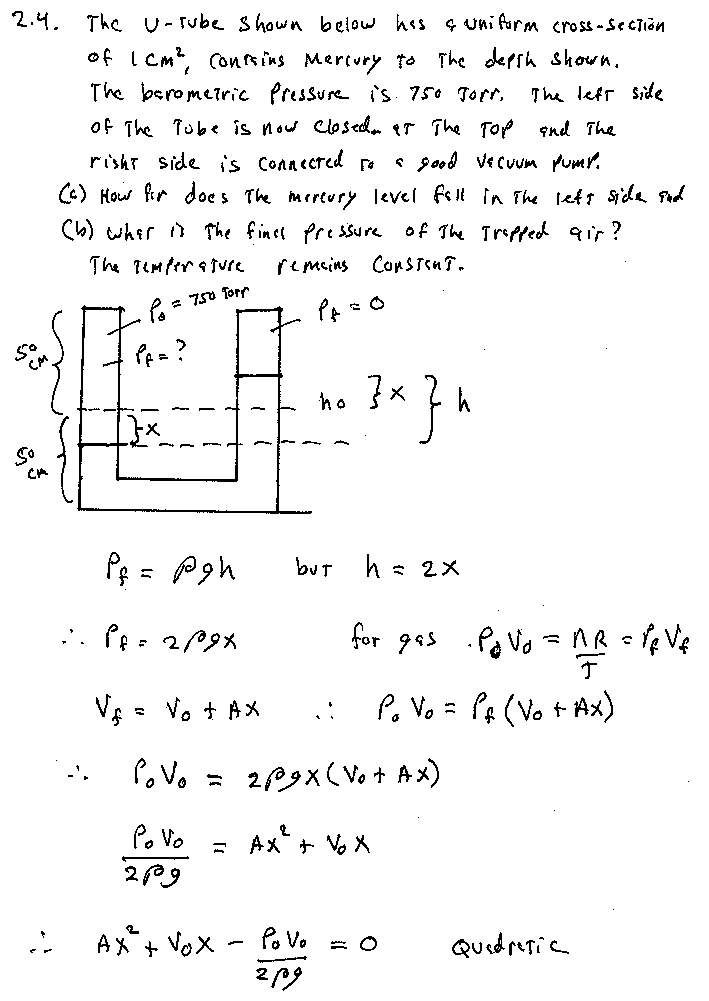 2.4. The U-Tube Shown below has a uniform cross-section
of 1 cm², Contains Mercury to The depth shown.
The barometric Pressure is 750 Torr. The left side
of The Tube is now closed at The Top and The
right side is Connected to a good vacuum pump.
(a) How far does The mercury level fall in The left side and
(b) what is The final pressure of The Trapped air?
The Temperature remains Constant.
P₀ = 750 Torr
P_f = 0
50 cm
P_f = ?
h₀ } x } h
} x
50 cm
P_f = ρgh but h = 2x
∴ P_f = 2ρgx for gas P₀V₀ = nR/T = P_f V_f
V_f = V₀ + Ax ∴ P₀V₀ = P_f (V₀ + Ax)
∴ P₀V₀ = 2ρgx(V₀ + Ax)
P₀V₀/2ρg = Ax² + V₀x
∴ Ax² + V₀x - P₀V₀/2ρg = 0 Quadratic